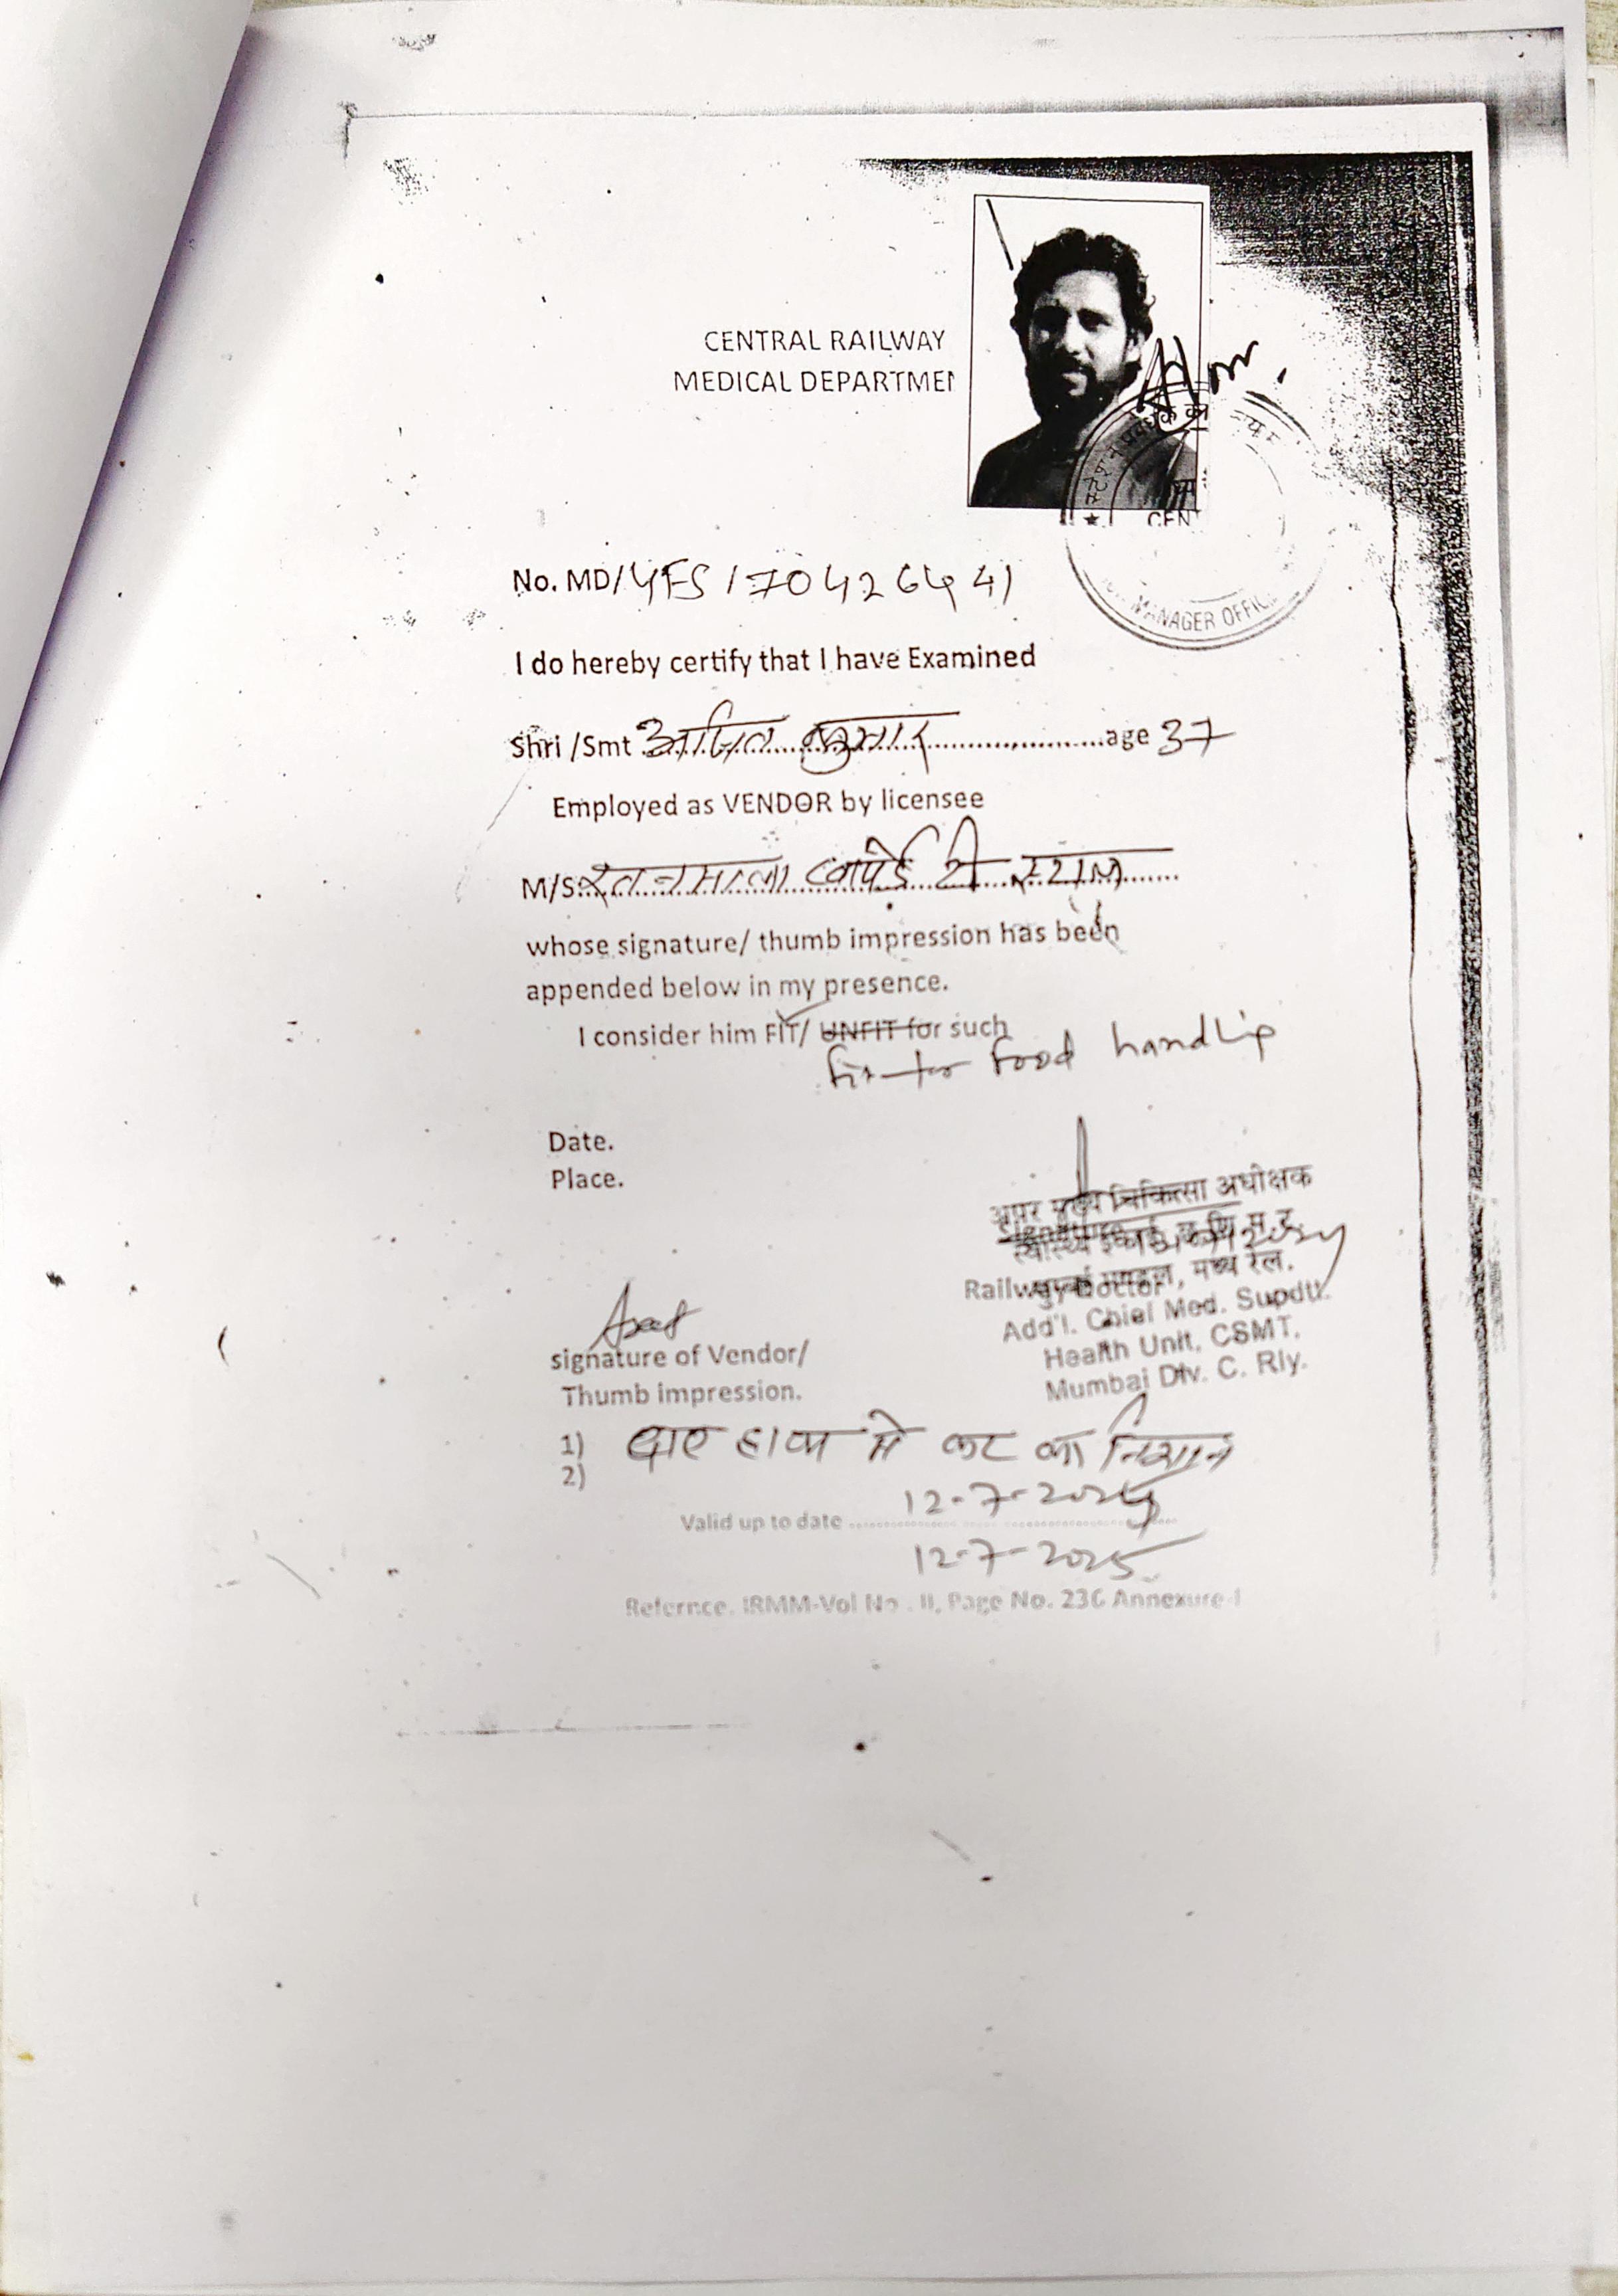 CENTRAL RAILWAY
MEDICAL DEPARTMEN
CEN
MANAGER OFFIC
No. MD/YFS 170426441
I do hereby certify that I have Examined
Shri /Smt कुमार age 37
Employed as VENDOR by licensee
M/S रतनमाला टी स्टाल
whose signature/ thumb impression has been
appended below in my presence.
I consider him FIT/ UNFIT for such
fit for food handlip
Date.
Place.
अपर मुख्य चिकित्सा अधीक्षक
Signature
मुंबई मण्डल, मध्य रेल.
Railway Doctor
Add'l. Chief Med. Supdt.
Health Unit, CSMT.
Mumbai Div. C. Rly.
signature of Vendor/
Thumb impression.
1) हाथ मे कट का निशान
2)
12-7-2024
Valid up to date
12-7-2025
Refernce. IRMM-Vol No . II, Page No. 236 Annexure-I